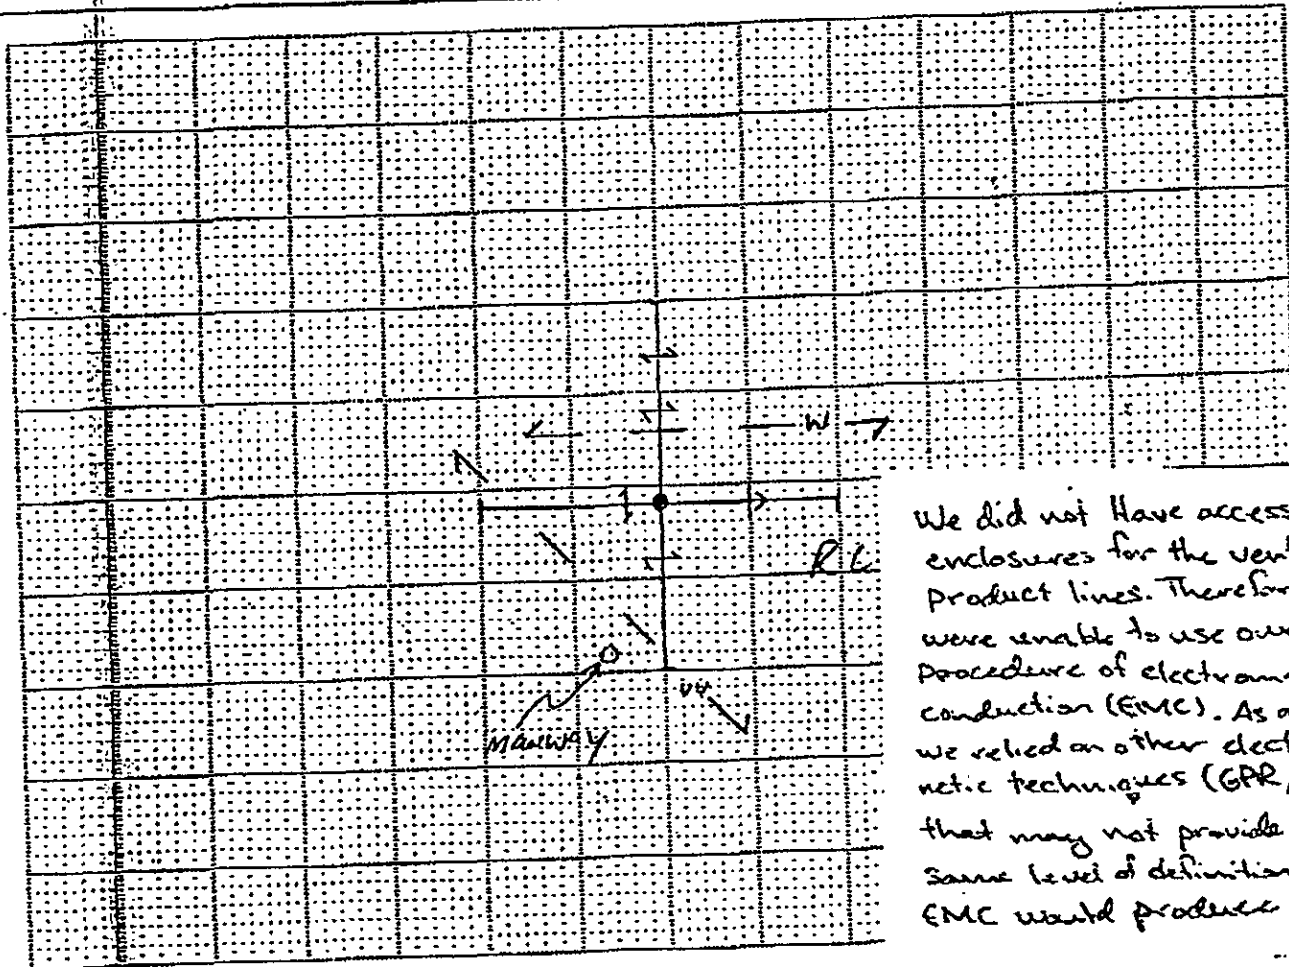 W
RL
Manway
We did not Have access
enclosures for the ven
product lines. Therefor
were unable to use our
procedure of electrom
conduction (EMC). As a
we relied on other elect
netic techniques (GPR,
that may not provide
same level of definition
EMC would produce